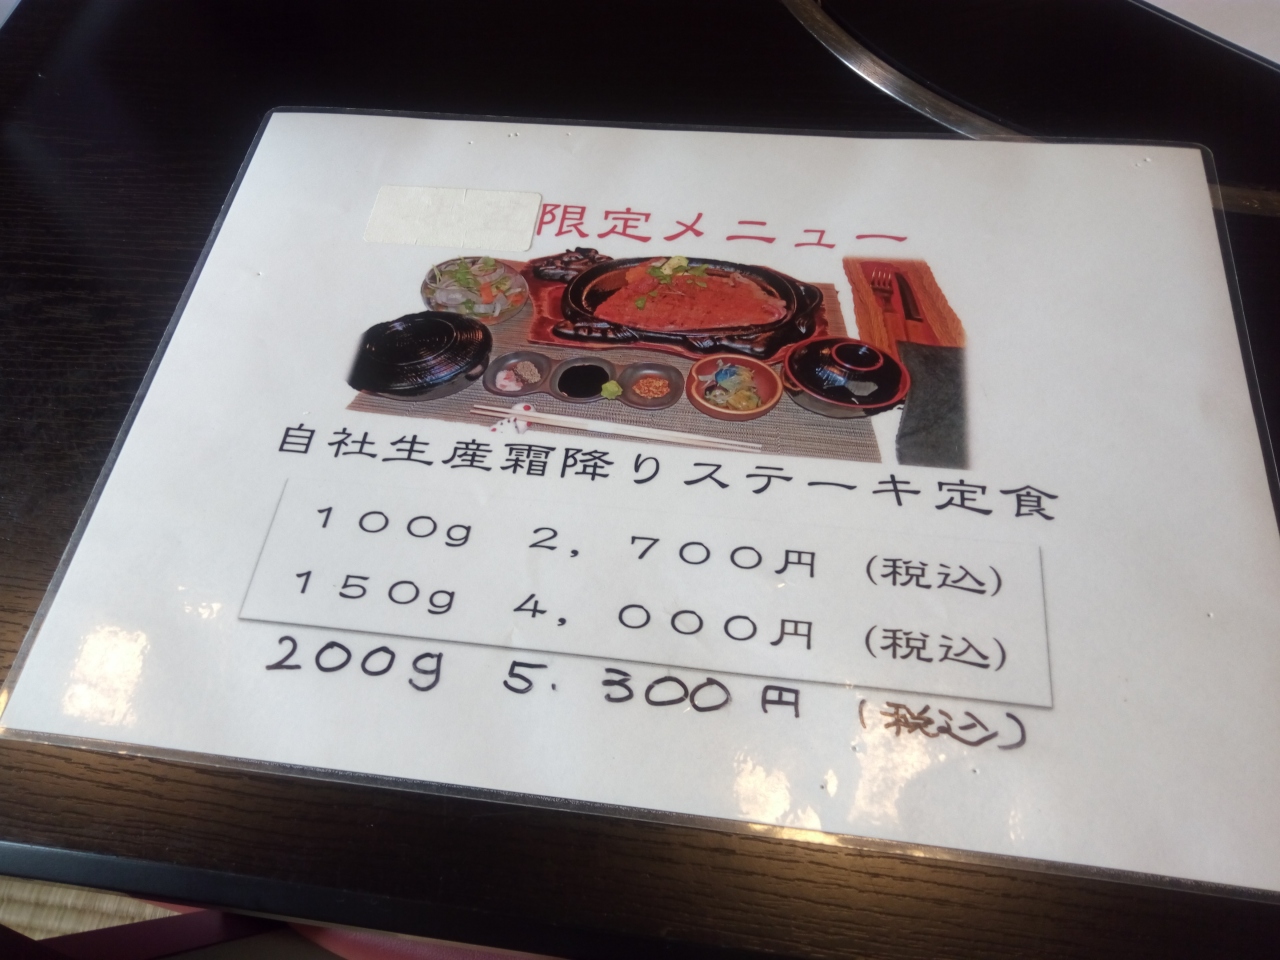 限定メニュー
自社生産霜降りステーキ定食
100g 2,700円 (税込)
150g 4,000円 (税込)
200g 5.300円 (税込)